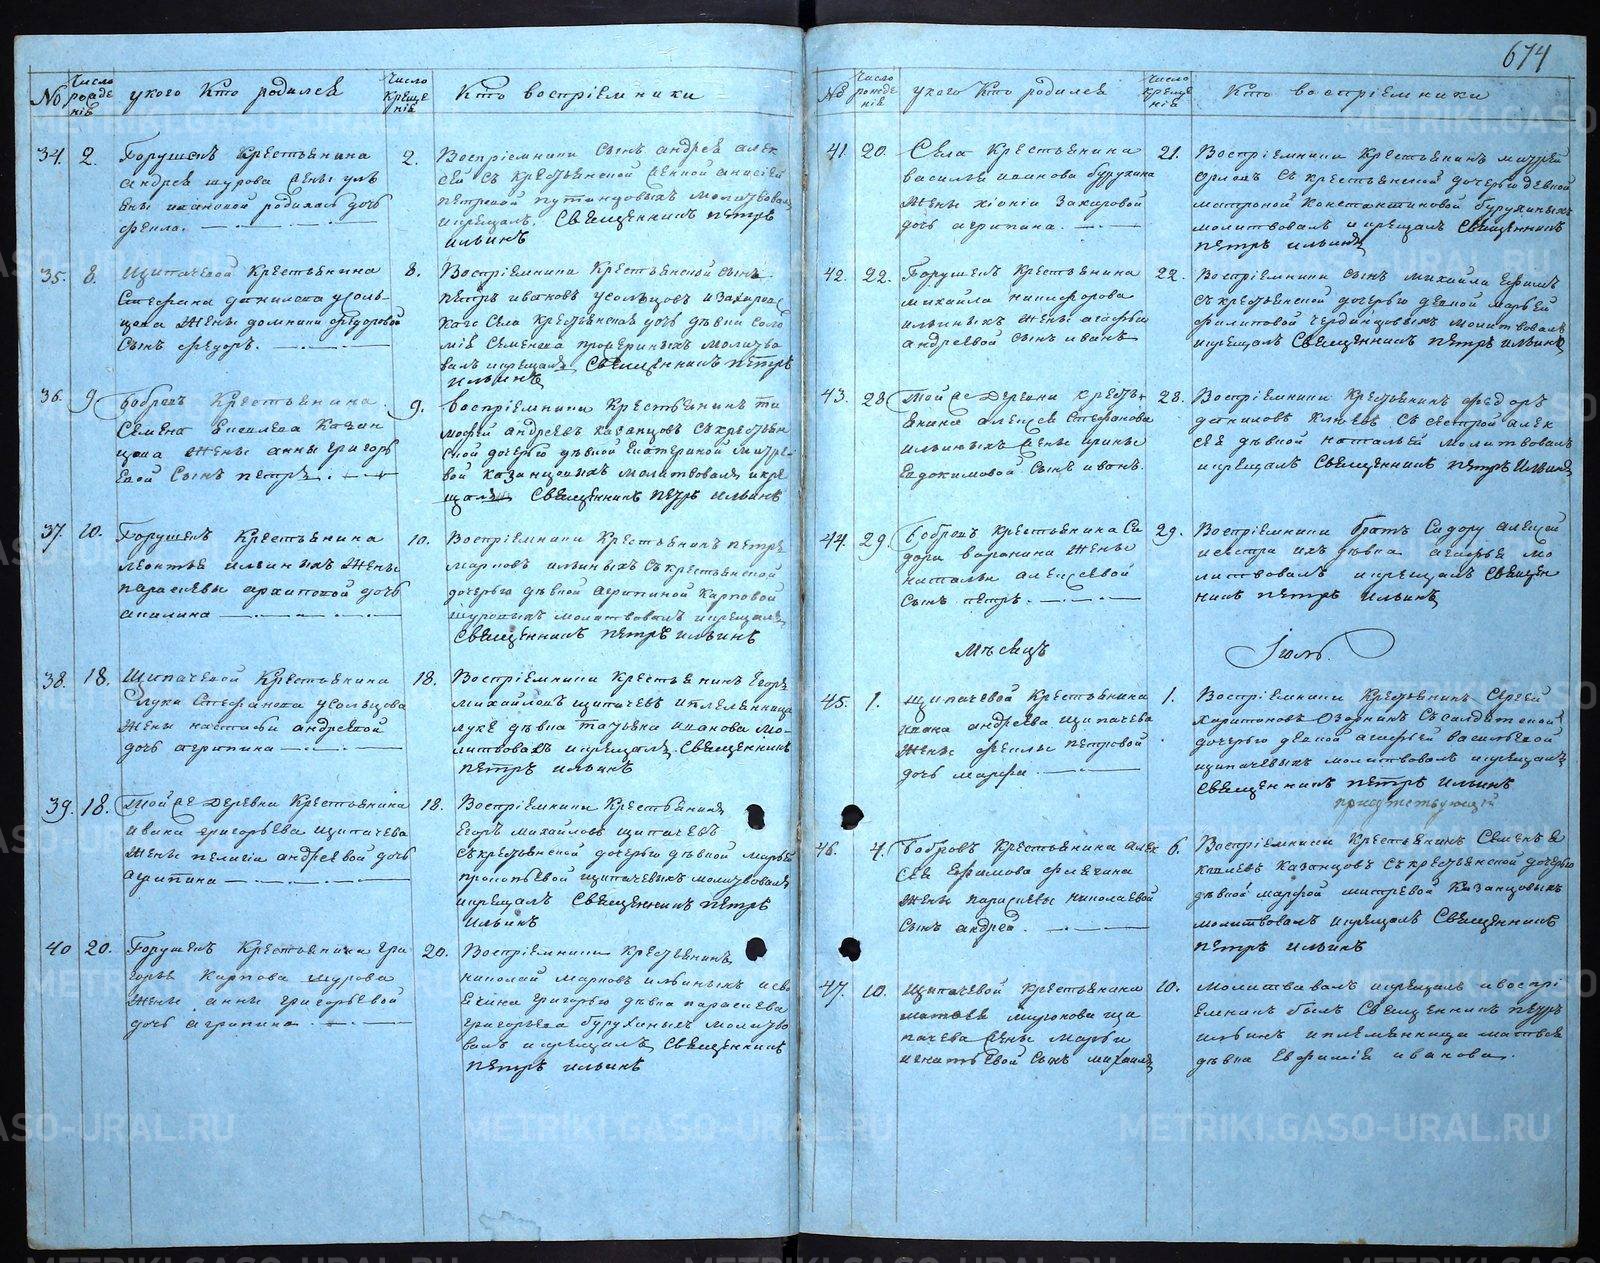 №
Число рожде нія
у кого Кто родился
Число креще нія
Кто воспріемники
34. 2.
Горушекъ Крестьянина
андрея шурова жены уль
яны ивановой родилась дочь
фекла.
2.
Воспріемники сынъ андрея алек
сей съ крестьянской женой анисіей
петровой путинцовыхъ молитвовалъ
и крещалъ. Священникъ петръ
ильинъ
35. 8.
Щипачевой крестьянина
Стефана данилова усоль-
цова жены домники федоровой
сынъ федоръ.
8.
Воспріемники Крестьянской сынъ
петръ ивановъ усольцовъ и захаров
каго села крестьянская дочь девка соло
мія семенова молитво
валъ и крещалъ Священникъ петръ
ильинъ
36. 9
Бобровъ Крестьянина
Семена Казан
цова жены анны григорь
евой сынъ петръ.
9.
воспріемники Крестьянинъ ти
мофей андреевъ казанцовъ съ крестьян
ской дочерью девкой Екатериной дмитре-
вой казанцовыхъ молитвовалъ и кре
щалъ Священникъ петръ ильинъ
37. 10.
Горушекъ Крестьянина
леонтья ильиныхъ жены
парасковьи архиповой дочь
акилина
10.
Воспріемники Крестьянинъ петръ
марковъ ильиныхъ съ крестьянской
дочерью девкой агрипиной карповой
шуровыхъ молитвовалъ и крещалъ
Священникъ петръ ильинъ
38. 18.
Щипачевой Крестьянина
луки Стефанова усольцова
жены настасьи андревой
дочь агрипина
18.
Воспріемники Крестьянинъ Егоръ
михайловъ щипачевъ и племянница
луке девка татьяна иванова мо-
литвовалъ и крещалъ Священникъ
петръ ильинъ
39. 18.
Той же деревни Крестьянина
ивана григорьева щипачева
жены пелагіи андреевой дочь
агрипина
18.
Воспріемники Крестьянинъ
Егоръ михайловъ щипачевъ
съ крестьянской дочерью девкой марьей
прокопьевой щипачевыхъ молитвовалъ
и крещалъ Священникъ петръ
ильинъ
40 20.
Горушекъ Крестьянина гри
горья Карпова шурова
жены анны григорьевой
дочь агрипина
20.
Воспріемники Крестьянинъ
николай марковъ ильиныхъ и сво
ячина григорью девка парасковья
григорьева бурухиныхъ молитво
валъ и крещалъ Священникъ
петръ ильинъ
674
№
Число рожде нія
у кого Кто родился
Число креще нія
Кто воспріемники
41. 20.
Села Крестьянина
василья иванова бурухина
жены хіоніи Захаровой
дочь агрипина.
21.
Воспріемники Крестьянинъ
съ крестьянской дочерью девкой
матроной Константиновой бурухиныхъ
молитвовалъ и крещалъ Священникъ
петръ ильинъ
42. 22.
Горушекъ Крестьянина
михайла никифорова
ильиныхъ жены агафьи
андреевой сынъ иванъ
22.
Воспріемники сынъ михайла Ефимъ
съ крестьянской дочерью девкой марьей
филиповой чердынцовыхъ молитвовалъ
и крещалъ Священникъ петръ ильинъ
43. 28
Той же деревни кресть
янина алексея Стефанова
ильиныхъ жены ирины
Евдокимовой сынъ иванъ.
28.
Воспріемники Крестьянинъ федоръ
даниловъ Клюевъ съ сестрой алек
сея девкой натальей молитвовалъ
и крещалъ Священникъ петръ ильинъ
44. 29.
Бобровъ крестьянина Си
дора воронина жены
натальи алексеевой
сынъ петръ.
29.
Воспріемники братъ Сидору алексей
и сестра ихъ девка агафья мо
литвовалъ и крещалъ Священ
никъ петръ ильинъ
Месяцъ Іюль.
45. 1.
Щипачевой Крестьянина
ивана андреева щипачева
жены феклы петровой
дочь марфа.
1.
Воспріемники Крестьянинъ Сергей
Харитоновъ Озорнинъ съ солдатской
дочерью девкой агафьей васильевой
щипачевыхъ молитвовалъ и крещалъ
Священникъ петръ ильинъ
46. 4.
Бобровъ Крестьянина алек
сея Ефимова
жены парасковьи николаевой
сынъ андрей.
6.
Воспріемники Крестьянинъ Семенъ я
ковлевъ Казанцовъ съ крестьянской дочерью
девкой марфой дмитревой Казанцовыхъ
молитвовалъ и крещалъ Священникъ
петръ ильинъ
47. 10.
Щипачевой крестьянина
матвея миронова щи
пачева жены марьи
игнатьевой сынъ михаилъ
10.
Молитвавалъ и крещалъ и воспрі
емникъ былъ Священникъ петръ
ильинъ и племянница матвея
девка Евфимія иванова.
METRIKI.GASO-URAL.RU